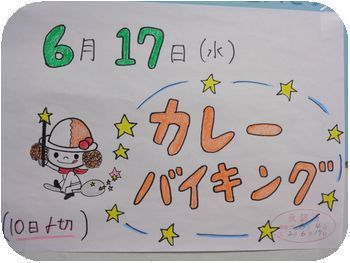 6月17日(水)
カレー
バイキング
(10日〆切)